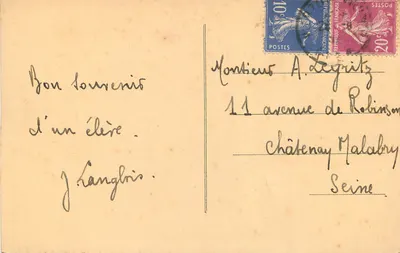 Bon souvenir
d'un élève.
J Langlois.
10c
POSTES
20c
POSTES
Monsieur A. Leyritz
11 avenue de Robinson
Châtenay Malabry
Seine